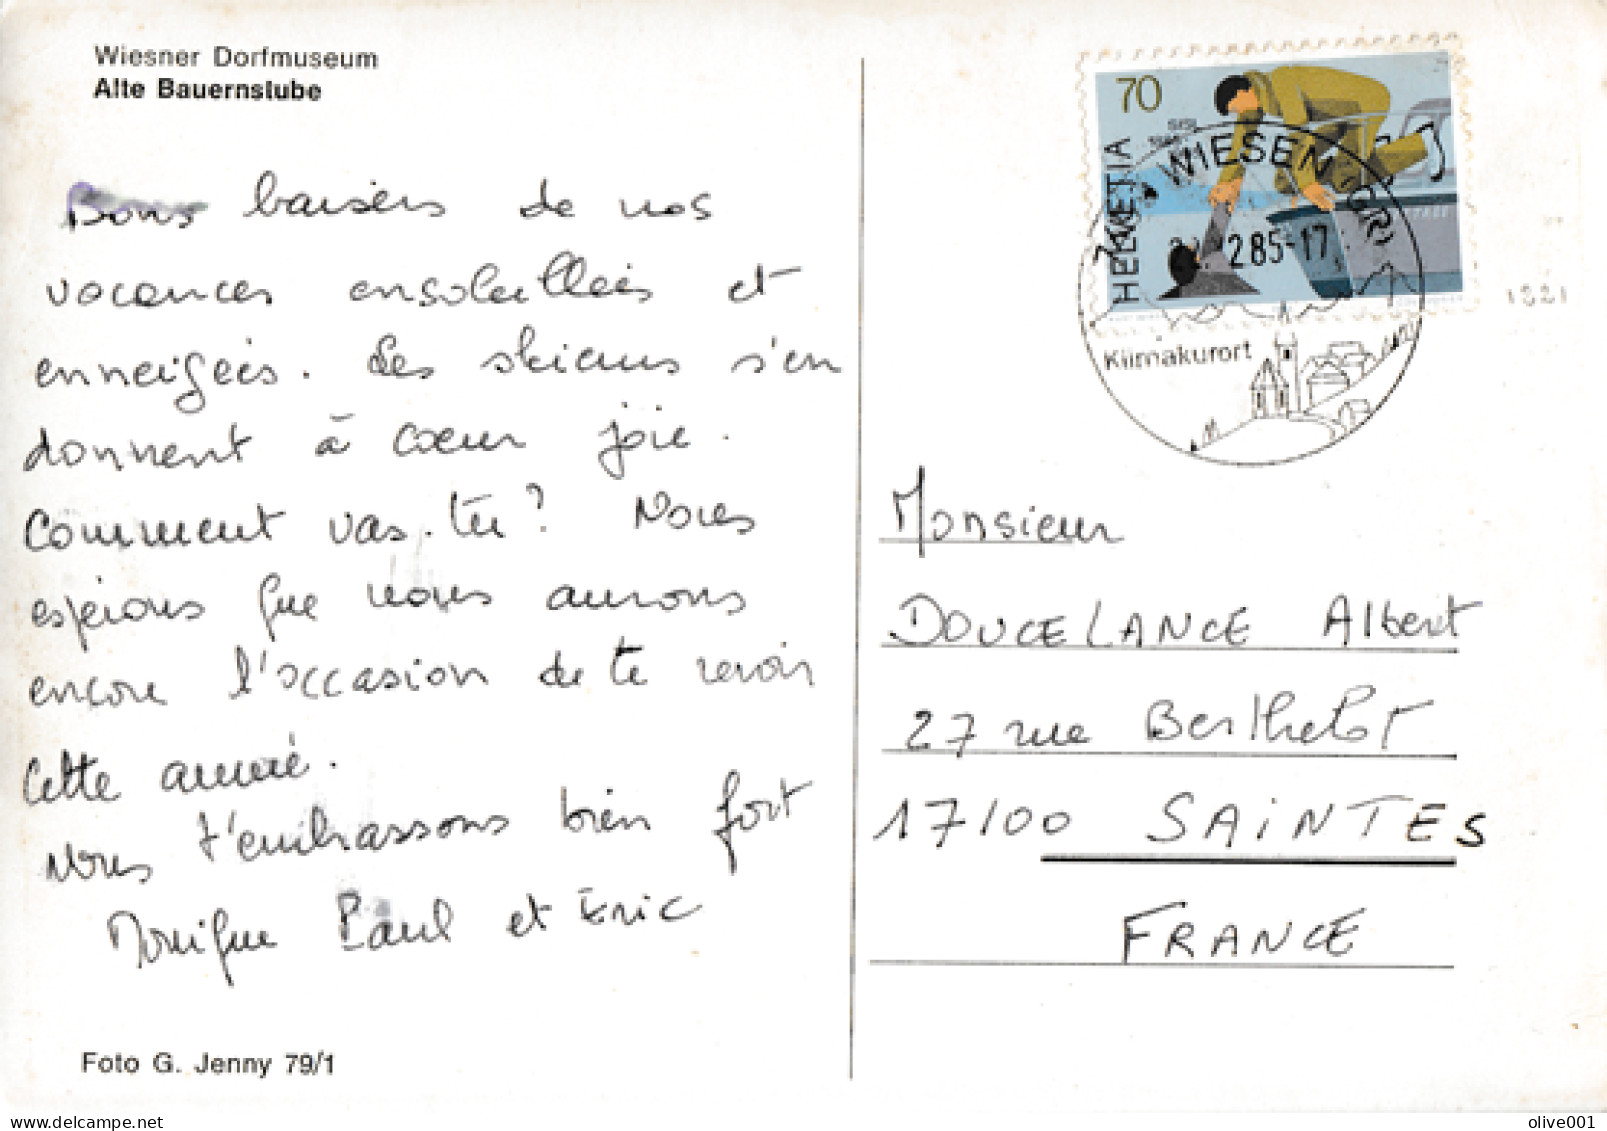 Wiesner Dorfmuseum
Alte Bauernstube
Bons baisers de nos
vacances ensoleillées et
enneigées. Les skieurs s'en
donnent à cœur joie.
Comment vas-tu? Nous
espérons que nous aurons
encore l'occasion de te revoir
cette année.
Nous t'embrassons bien fort
Monique Paul et Eric
Foto G. Jenny 79/1
70
HELVETIA
WIESEN (GR)
285-17
Klimakurort
1821
Monsieur
DOUCELANCE Albert
27 rue Berthelot
17100 SAINTES
FRANCE
olive001